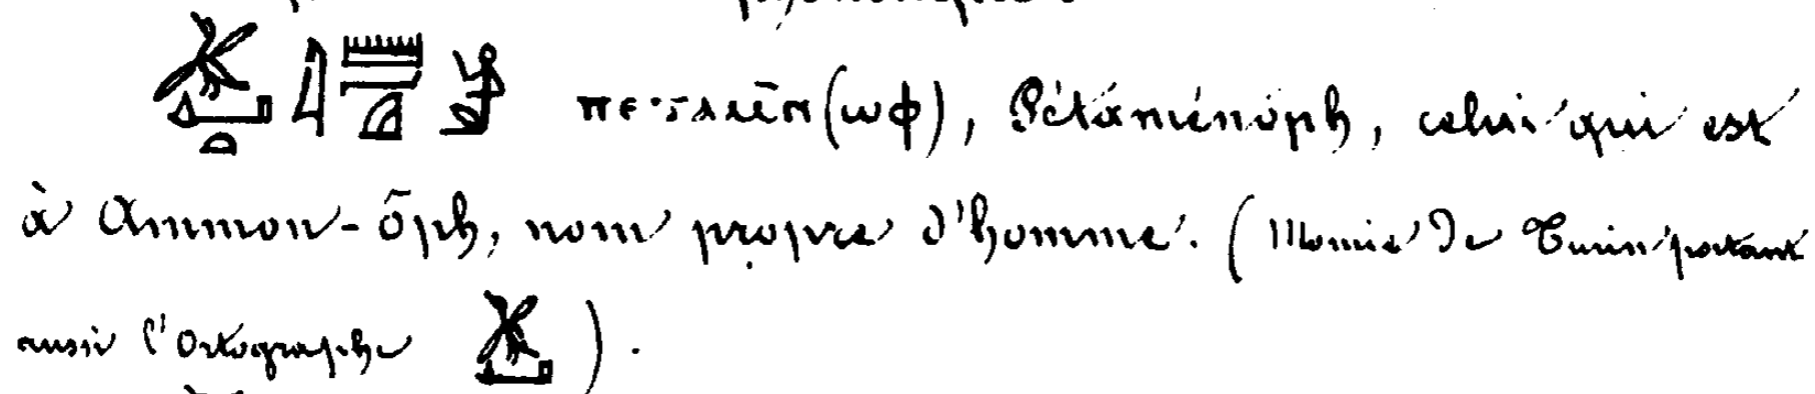 ⲡⲉⲧⲁⲙⲉⲛ(ⲱⲫ), Pétaménôph, celui qui est
à Ammon-ôph, nom propre d'homme. (Momie de Turin portant
aussi l'Ortographe ).